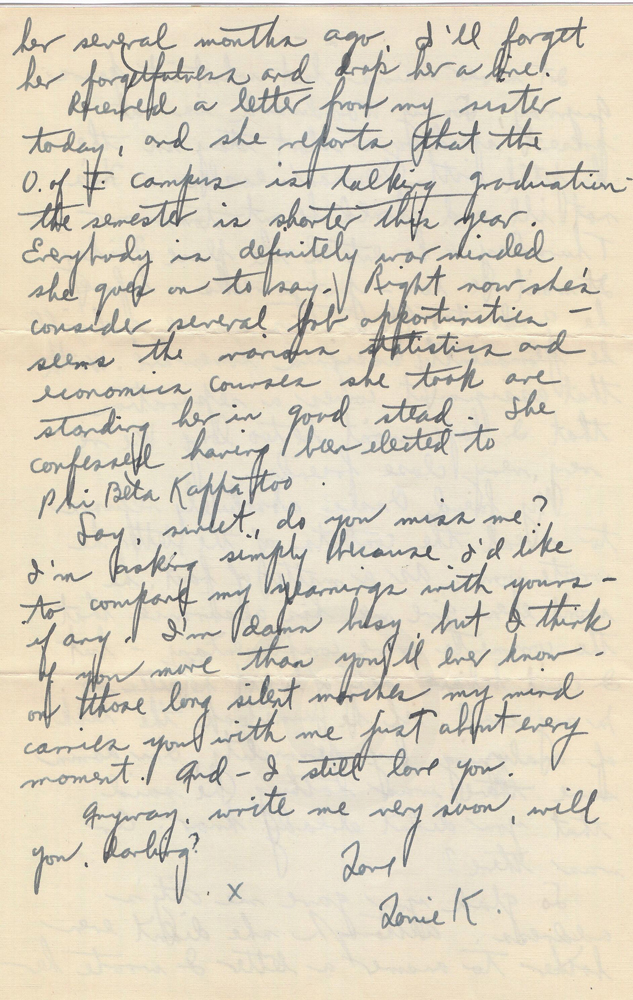 her several months ago, I'll forget
her forgetfulness and drop her a line.
Received a letter from my sister
today, and she reports that the
U. of I. campus is talking graduation -
the semester is shorter this year.
Everybody is definitely war minded
she goes on to say. Right now she's
consider several job opportunities -
seems the various statistics and
economics courses she took are
standing her in good stead. She
confessed having been elected to
Phi Beta Kappa too.
Say, sweet, do you miss me?
I'm asking simply because I'd like
to compare my yearnings with yours -
if any. I'm damn busy, but I think
of you more than you'll ever know -
on those long silent marches my mind
carries you with me just about every
moment. And - I still love you.
Anyway, write me very soon, will
you, darling?
Love
x
K.